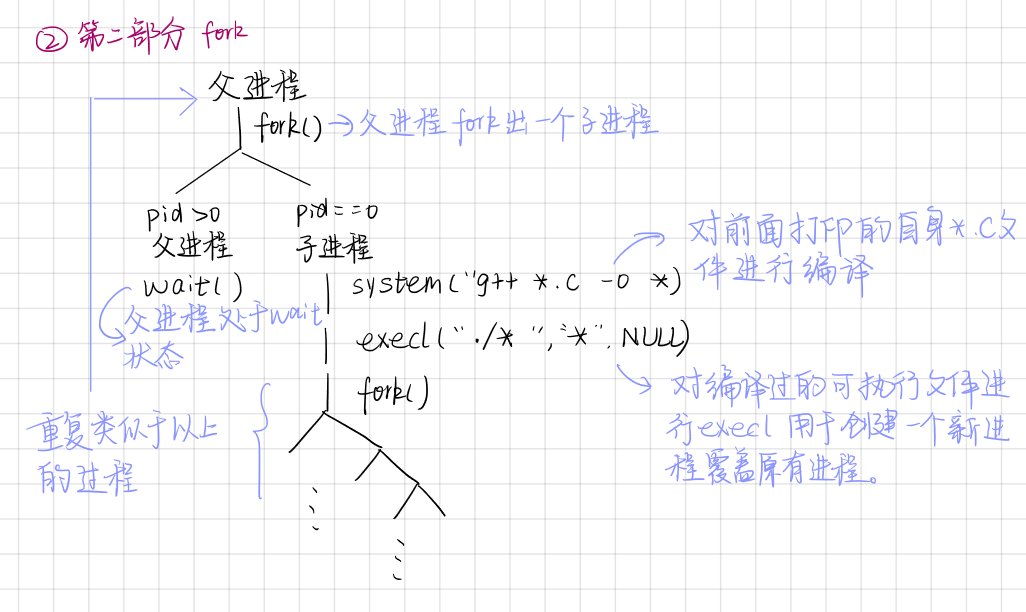 ② 第二部分 fork
父进程
fork() → 父进程fork出一个子进程
pid>0
父进程
wait()
父进程处于wait
状态
pid==0
子进程
system("g++ *.c -o *)
对前面打印的自身*.c文
件进行编译
execl("./* ","*", NULL)
对编译过的可执行文件进
行execl 用于创建一个新进
程覆盖原有进程。
fork()
重复类似于以上
的过程